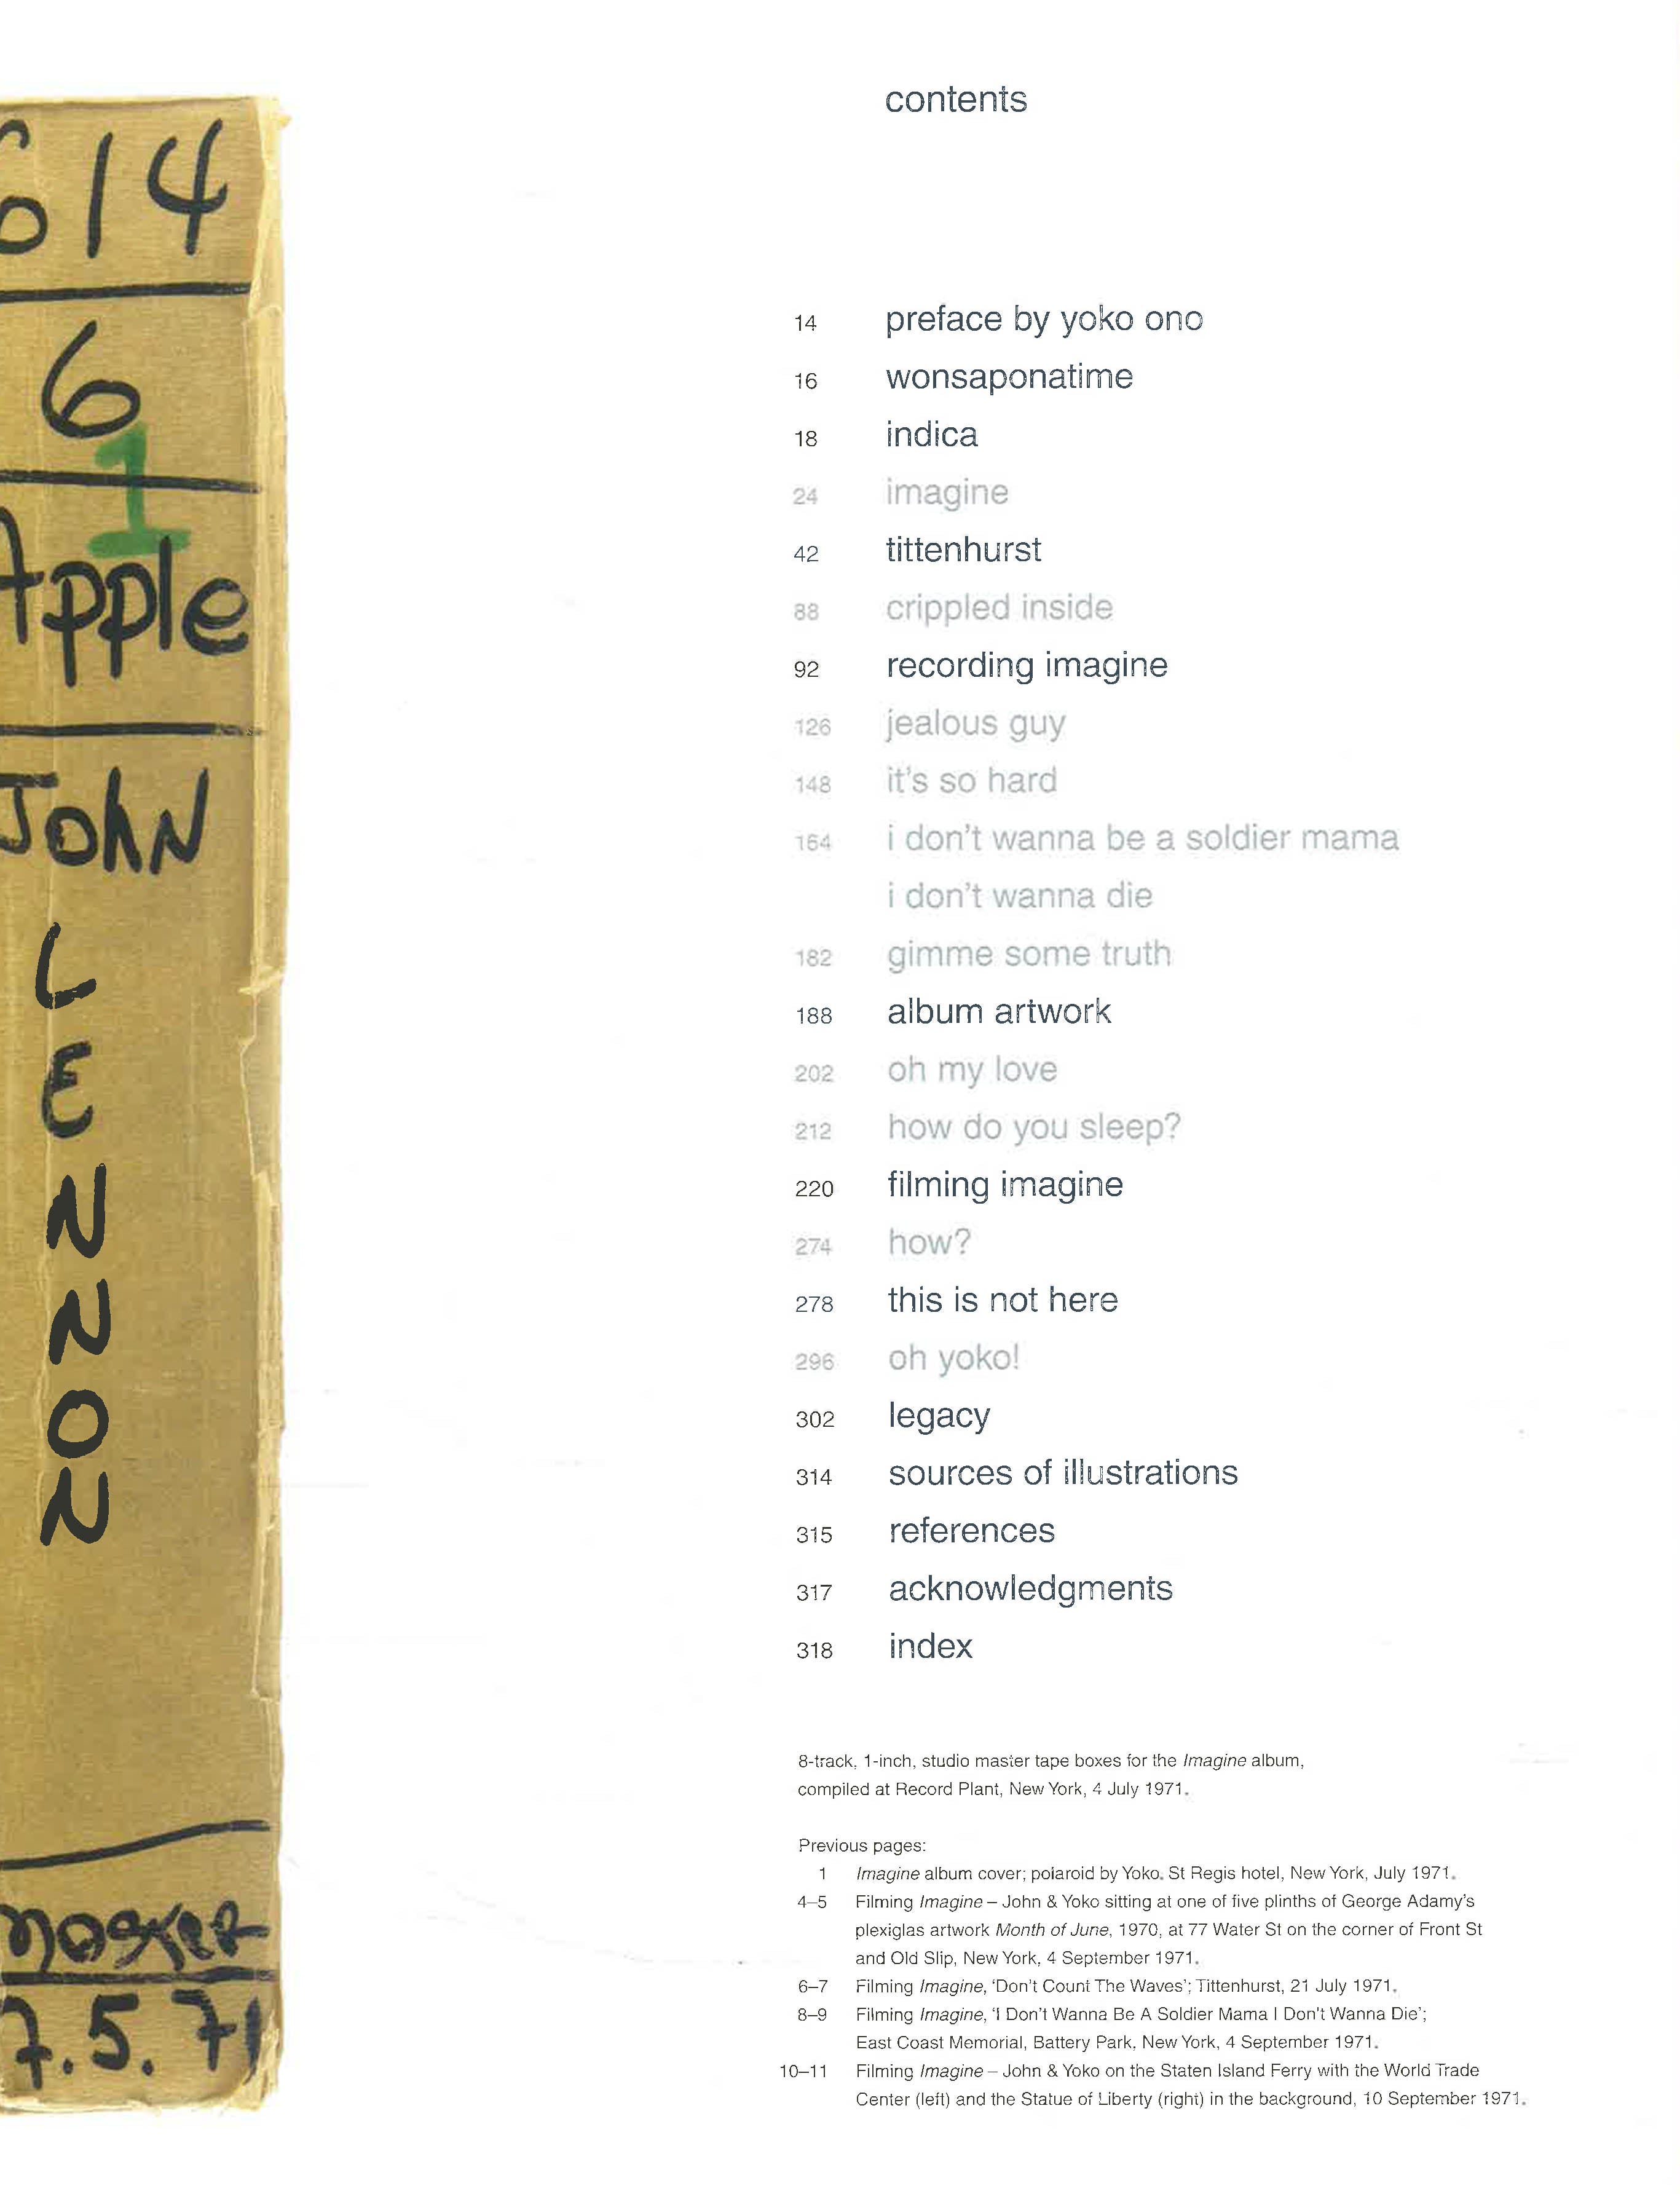 614
6
1
Apple
JOHN
L
E
N
N
O
N
7.5.71
contents
14 preface by yoko ono
16 wonsaponatime
18 indica
24 imagine
42 tittenhurst
88 crippled inside
92 recording imagine
126 jealous guy
148 it's so hard
164 i don't wanna be a soldier mama
i don't wanna die
182 gimme some truth
188 album artwork
202 oh my love
212 how do you sleep?
220 filming imagine
274 how?
278 this is not here
296 oh yoko!
302 legacy
314 sources of illustrations
315 references
317 acknowledgments
318 index
8-track, 1-inch, studio master tape boxes for the Imagine album,
compiled at Record Plant, New York, 4 July 1971.
Previous pages:
1 Imagine album cover; polaroid by Yoko. St Regis hotel, New York, July 1971.
4–5 Filming Imagine – John & Yoko sitting at one of five plinths of George Adamy's
plexiglas artwork Month of June, 1970, at 77 Water St on the corner of Front St
and Old Slip, New York, 4 September 1971.
6–7 Filming Imagine, 'Don't Count The Waves'; Tittenhurst, 21 July 1971.
8–9 Filming Imagine, 'I Don't Wanna Be A Soldier Mama I Don't Wanna Die';
East Coast Memorial, Battery Park, New York, 4 September 1971.
10–11 Filming Imagine – John & Yoko on the Staten Island Ferry with the World Trade
Center (left) and the Statue of Liberty (right) in the background, 10 September 1971.